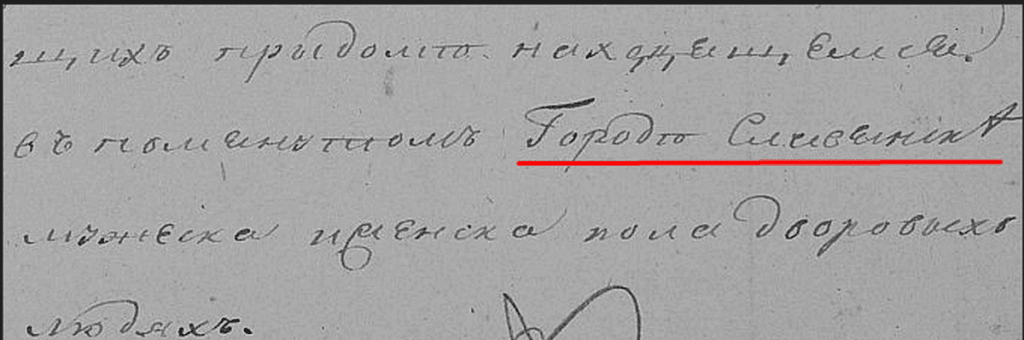 щихъ прыдомѣ находящемся
въ помянутомъ Городѣ Славенскѣ
мужеска иженска пола дворовыхъ
людяхъ.